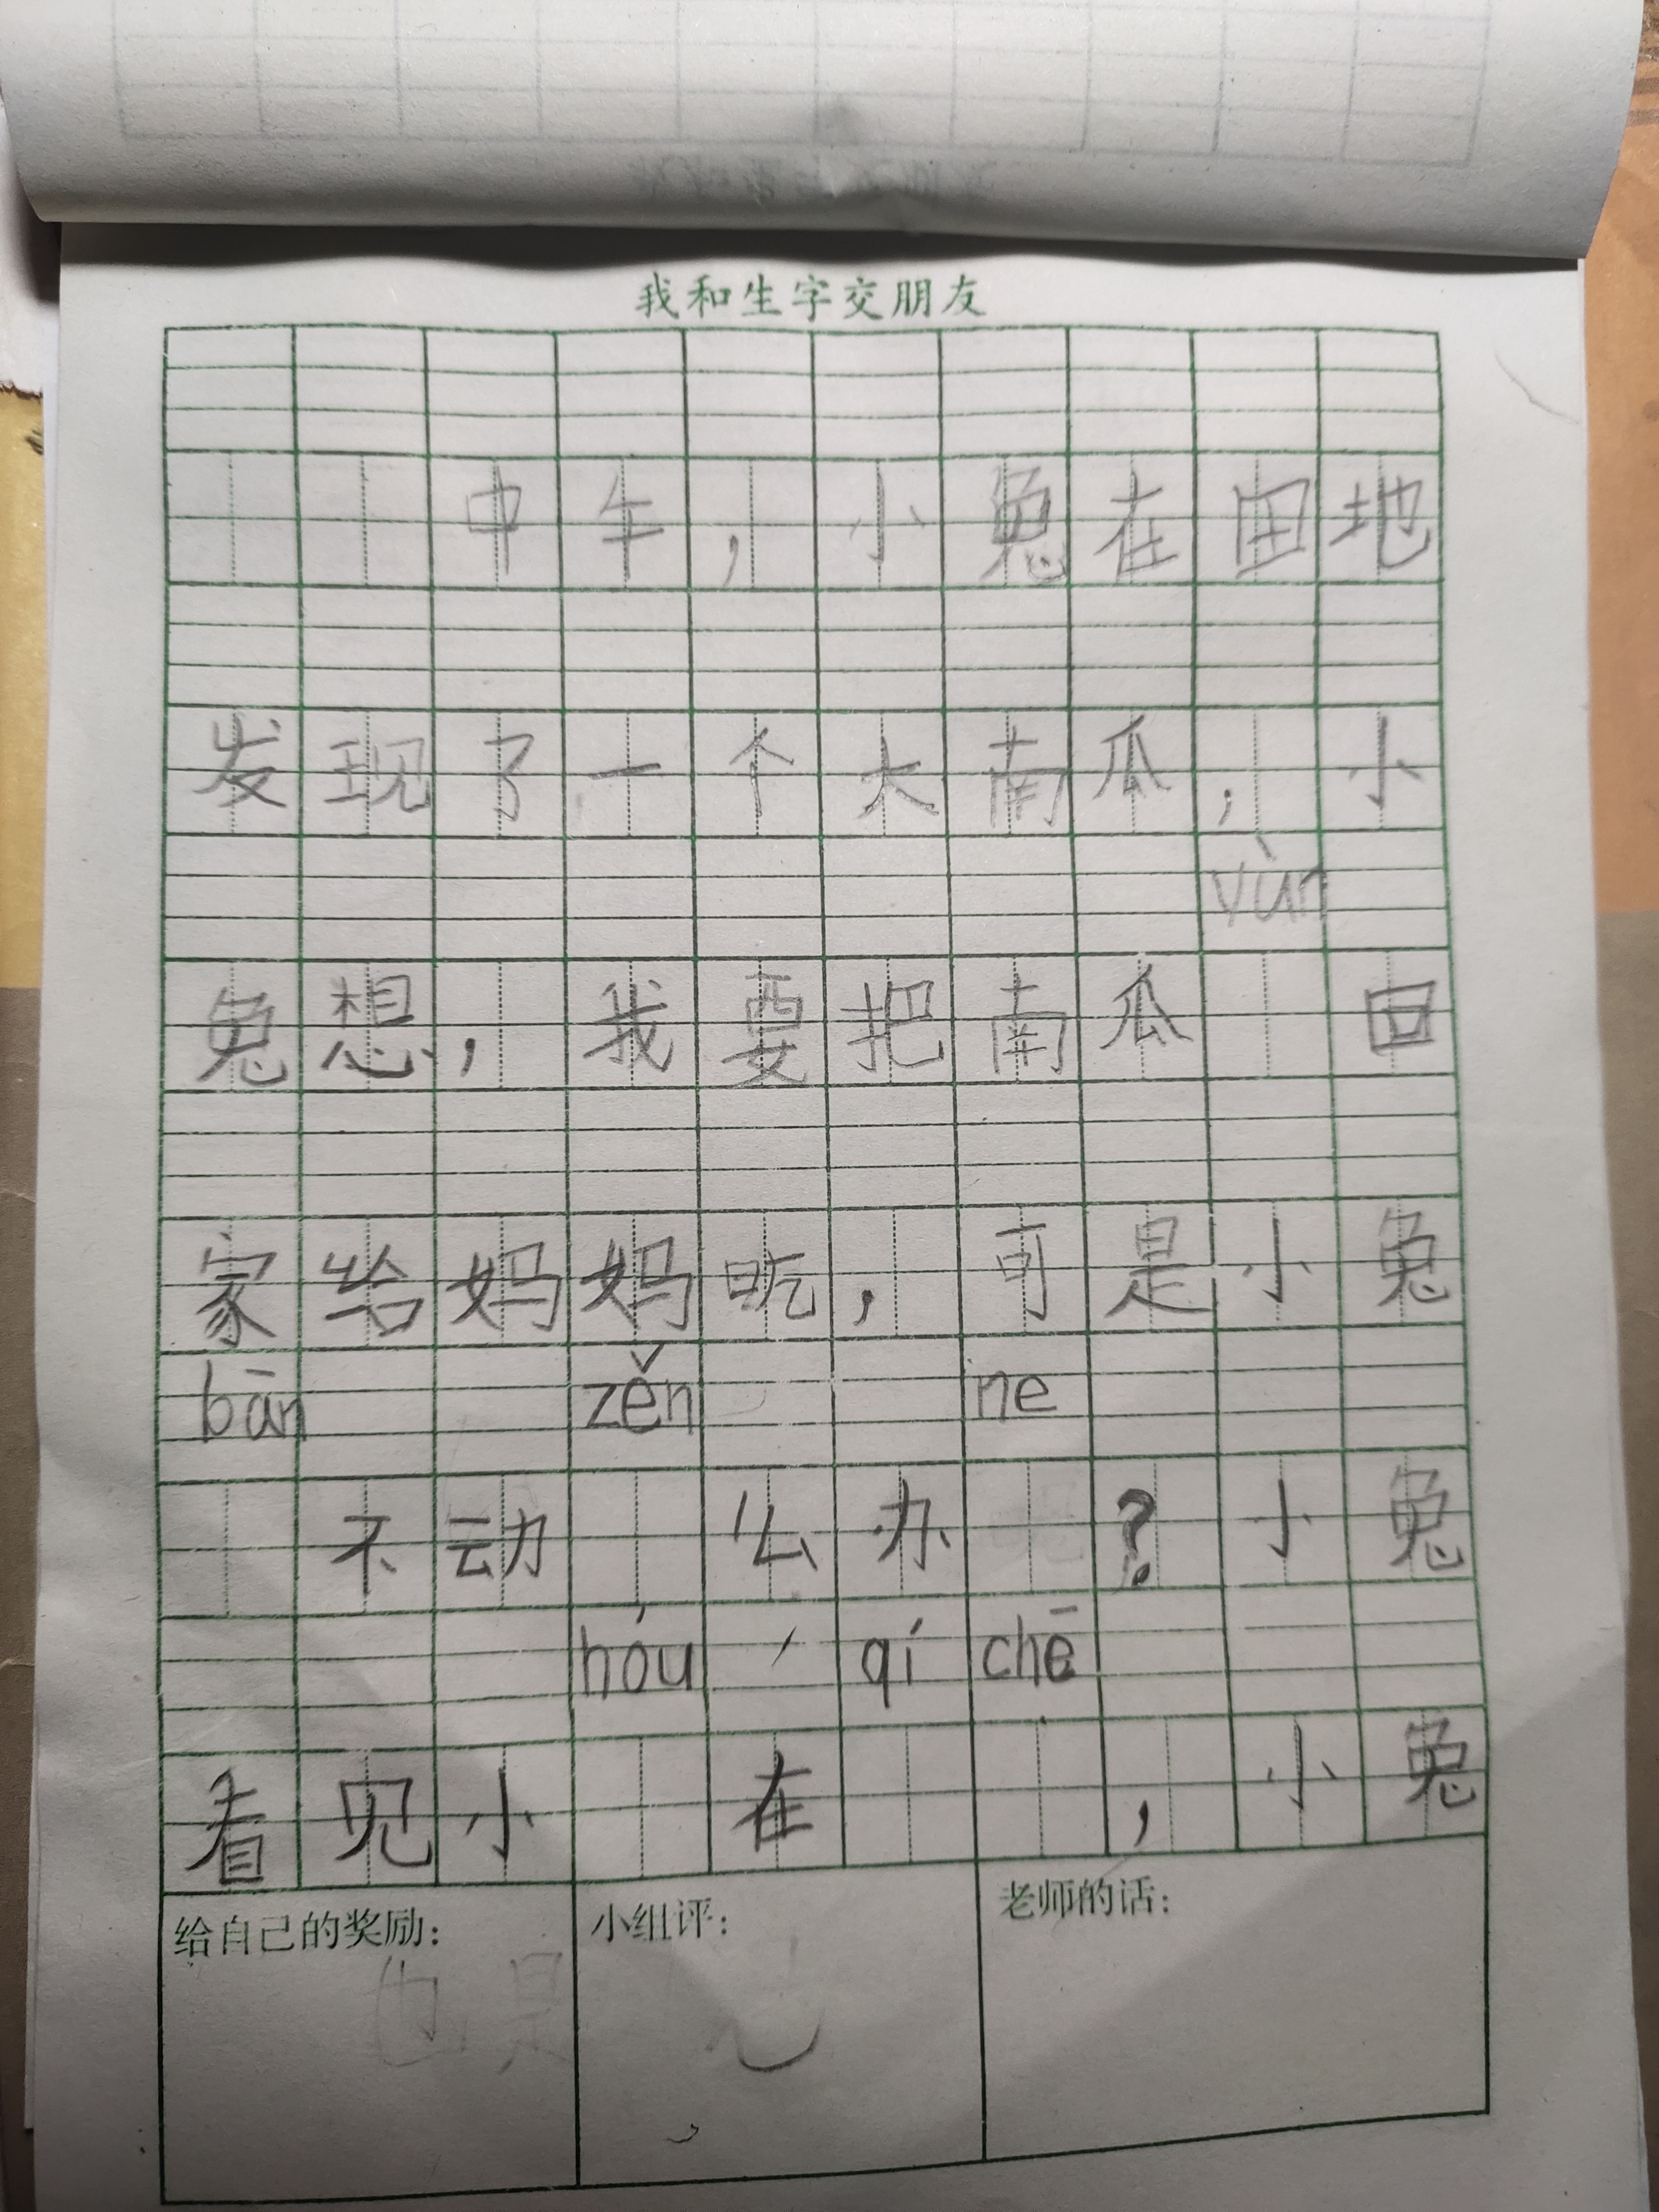 我和生字交朋友
中午，小兔在田地
发现了一个大南瓜，小
yùn
兔想，我要把南瓜 回
家给妈妈吃，可是小兔
bān zěn ne
不动 么办 ？小兔
hóu qí chē
看见小 在 ，小兔
给自己的奖励：
小组评：
老师的话：